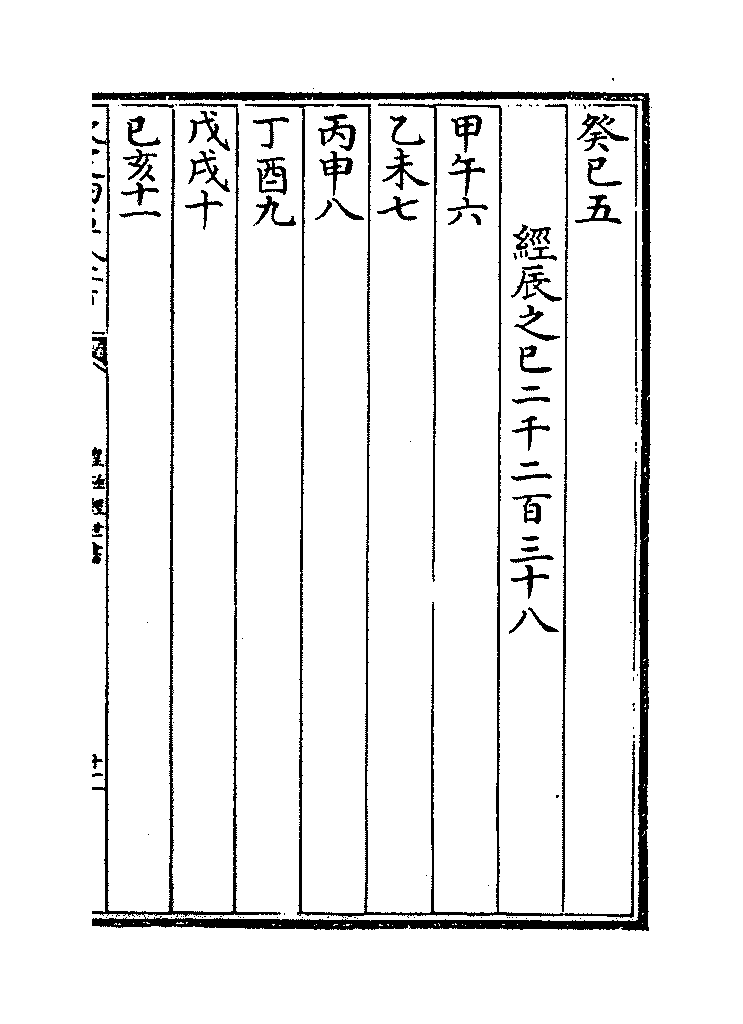 癸巳五
經辰之巳二千二百三十八
甲午六
乙未七
丙申八
丁酉九
戊戌十
己亥十一
皇極經世書
十二